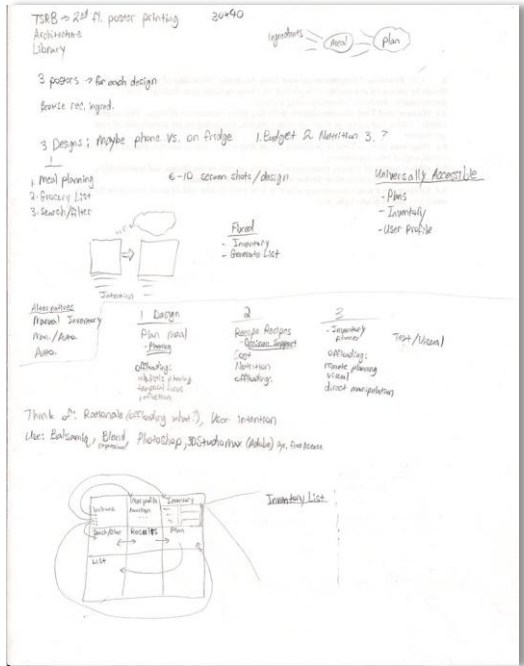 TSRB → 2nd fl. poster printing 30x40
Architecture
Library
Ingredients meal plan
3 posters → for each design
Browse rec, ingred.
3 Designs: Maybe phone vs. on fridge 1. Budget 2. Nutrition 3. ?
1. Meal planning
2. Grocery List
3. Search/filter
6-10 screen shots/design
Universally Accessible
- Plans
- Inventory
- User Profile
Fixed
- Inventory
- Generate List
Alternatives
Manual Inventory
Man./Auto.
Auto.
1 Design
Plan meal
- Planning
offloading:
temporal focus
2
Recipe
- Decision Support
Cost
Nutrition
offloading:
3
- Inventory
offloading:
remote planning
visual
direct manipulation
Text/Visual
Think of: Rationale (offloading what?), User Intention
Use: Balsamiq, Blend, Photoshop, 3D Studio max (Adobe)
Inventory
Results Plan
List
Inventory List